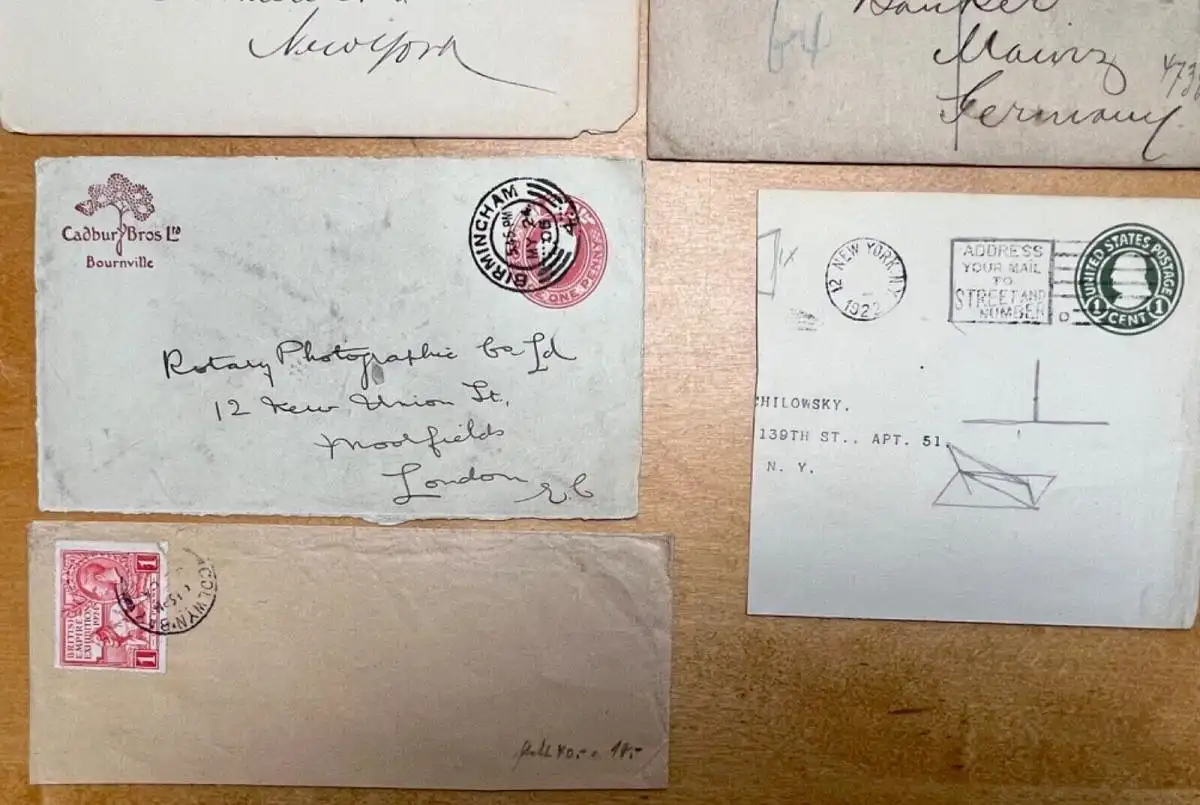 New York
64
Banker
Mainz
Germany
Cadbury Bros Ltd
Bournville
BIRMINGHAM
PM
MY 2
05
ONE PENNY
Rotary Photographic Co Ld
12 New Union St,
Moorfields
London E.C
NEW YORK, N.Y.
12
1922
ADDRESS
YOUR MAIL
TO
STREET AND
NUMBER
UNITED STATES POSTAGE
1 CENT 1
CHILOWSKY.
139TH ST., APT. 51
N. Y.
1
BRITISH
EMPIRE
EXHIBITION
1
COLWYN B